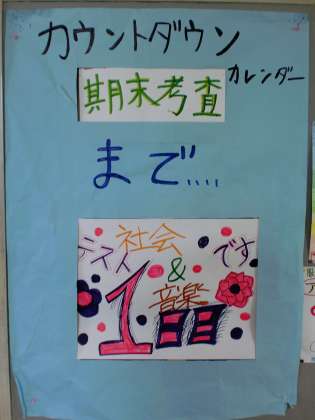 カウントダウン
カレンダー
期末考査
まで....
テスト 社会 です
&
音楽
1日目